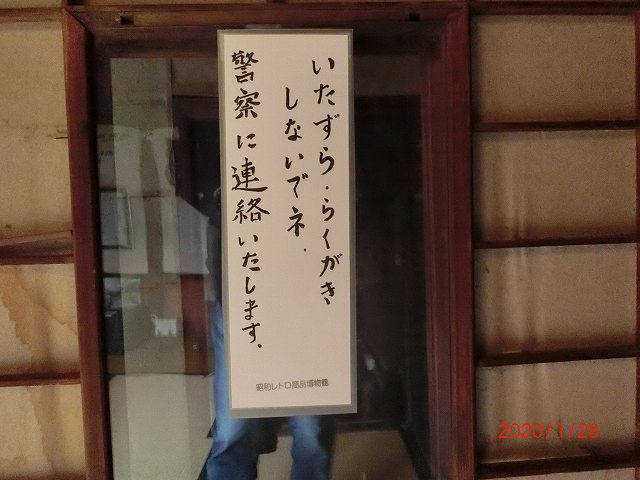 いたずら・らくがき
しないでネ.
警察に連絡いたします.
昭和レトロ商品博物館
2020/1/28